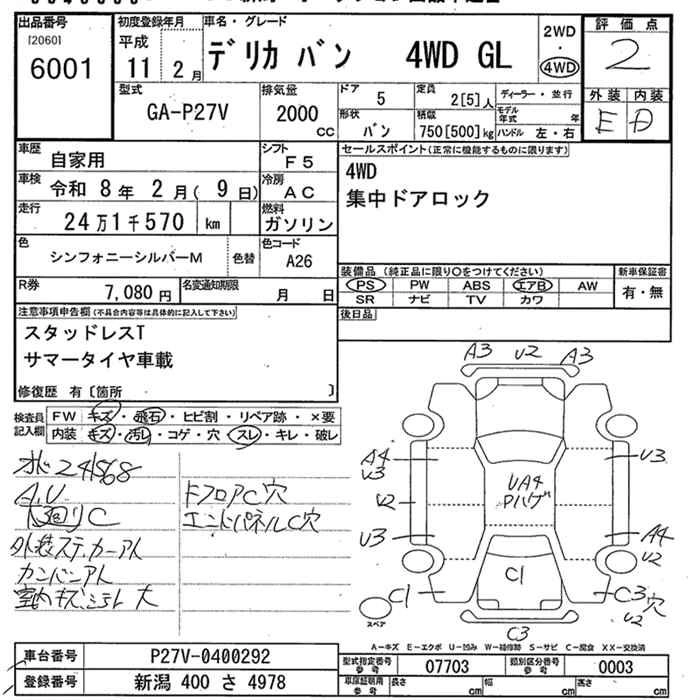 出品番号
[2060]
6001
初度登録年月
平成
11 2月
車名・グレード
デリカ バン 4WD GL
2WD
・
4WD
評価点
2
外装 内装
E D
型式
GA-P27V
排気量
2000
cc
ドア 5
定員 2[5]人
形状 バン
積載 750[500]kg
ディーラー・並行
モデル年式 年
ハンドル 左・右
車歴 自家用
シフト F5
車検 令和 8年 2月( 9日)
冷房 AC
走行 24万1千570 km
燃料 ガソリン
色 シンフォニーシルバーM 色替
色コード A26
R券 7,080円
名変通知期限 月 日
セールスポイント(正常に機能するものに限ります)
4WD
集中ドアロック
装備品(純正品に限り○をつけてください)
PS PW ABS エアB AW
SR ナビ TV カワ
新車保証書
有・無
後日品
注意事項申告欄(不具合内容等は具体的に記入して下さい)
スタッドレスT
サマータイヤ車載
修復歴 有〔箇所 〕
検査員記入欄
FW キズ・飛石・ヒビ割・リペア跡・×要
内装 キズ・汚レ・コゲ・穴・スレ・キレ・破レ
241568
A.U
C
外装ステッカーアト
カンバンアト
室内キズ、シミトレ大
ドフロアC穴
エンドパネルC穴
A3 U2 A3
A4
U3
U2
U3
C1
U3
A4
U2
C3
穴
U2
UA4
Pハゲ
C1
C3
スペア
A-キズ E-エクボ U-凹み W-補修跡 S-サビ C-腐食 XX-交換済
車台番号 P27V-0400292
登録番号 新潟 400 さ 4978
型式指定番号
参考 07703
類別区分番号
参考 0003
車庫証明用
参考 長さ cm 幅 cm 高さ cm